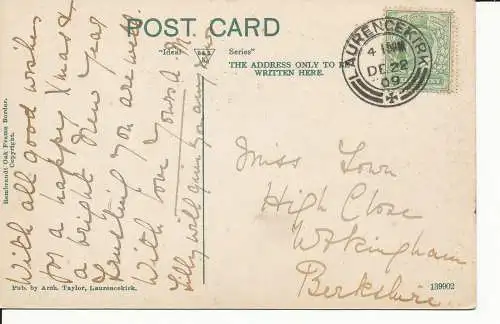 POST CARD
"Ideal Series"
THE ADDRESS ONLY TO BE
WRITTEN HERE.
LAURENCEKIRK
4 15PM
DE 22
09
With all good wishes
for a happy Xmas &
a bright New Year
Trusting you are well
With love Yours
Lily will give you any
Miss Town
High Close
Wokingham
Berkshire
Rembrandt Oak Frame Border.
Copyright.
Pub. by Arch. Taylor, Laurencekirk.
139902